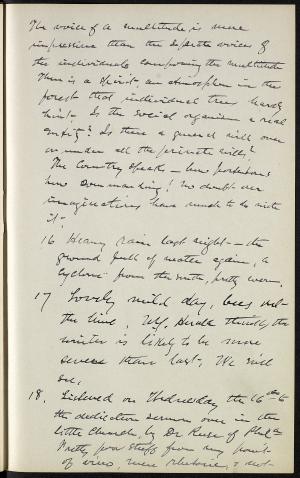 The voice of a multitude is more
impressive than the separate voices of
the individuals composing the multitude
There is a spirit, an atmosphere in the
forest that individual trees hardly
hint. Is the social organism a real
entity? Is there a general will over
or under all the private wills?
The Country speaks - how portentous
how commanding! no doubt our
imaginations have much to do with
it.
16 Heavy rain last night - the
ground full of water again, a
cyclone from the south, pretty warm.
17 Lovely mild day, bees out
the hive, thinks the
winter is likely to be more
severe than last. We will
see.
18. Listened on Wednesday the 16th to
the dedication sermon over in the
little Church, by Dr of Phila
Pretty poor stuff from my point
of view, mere rhetoric, &